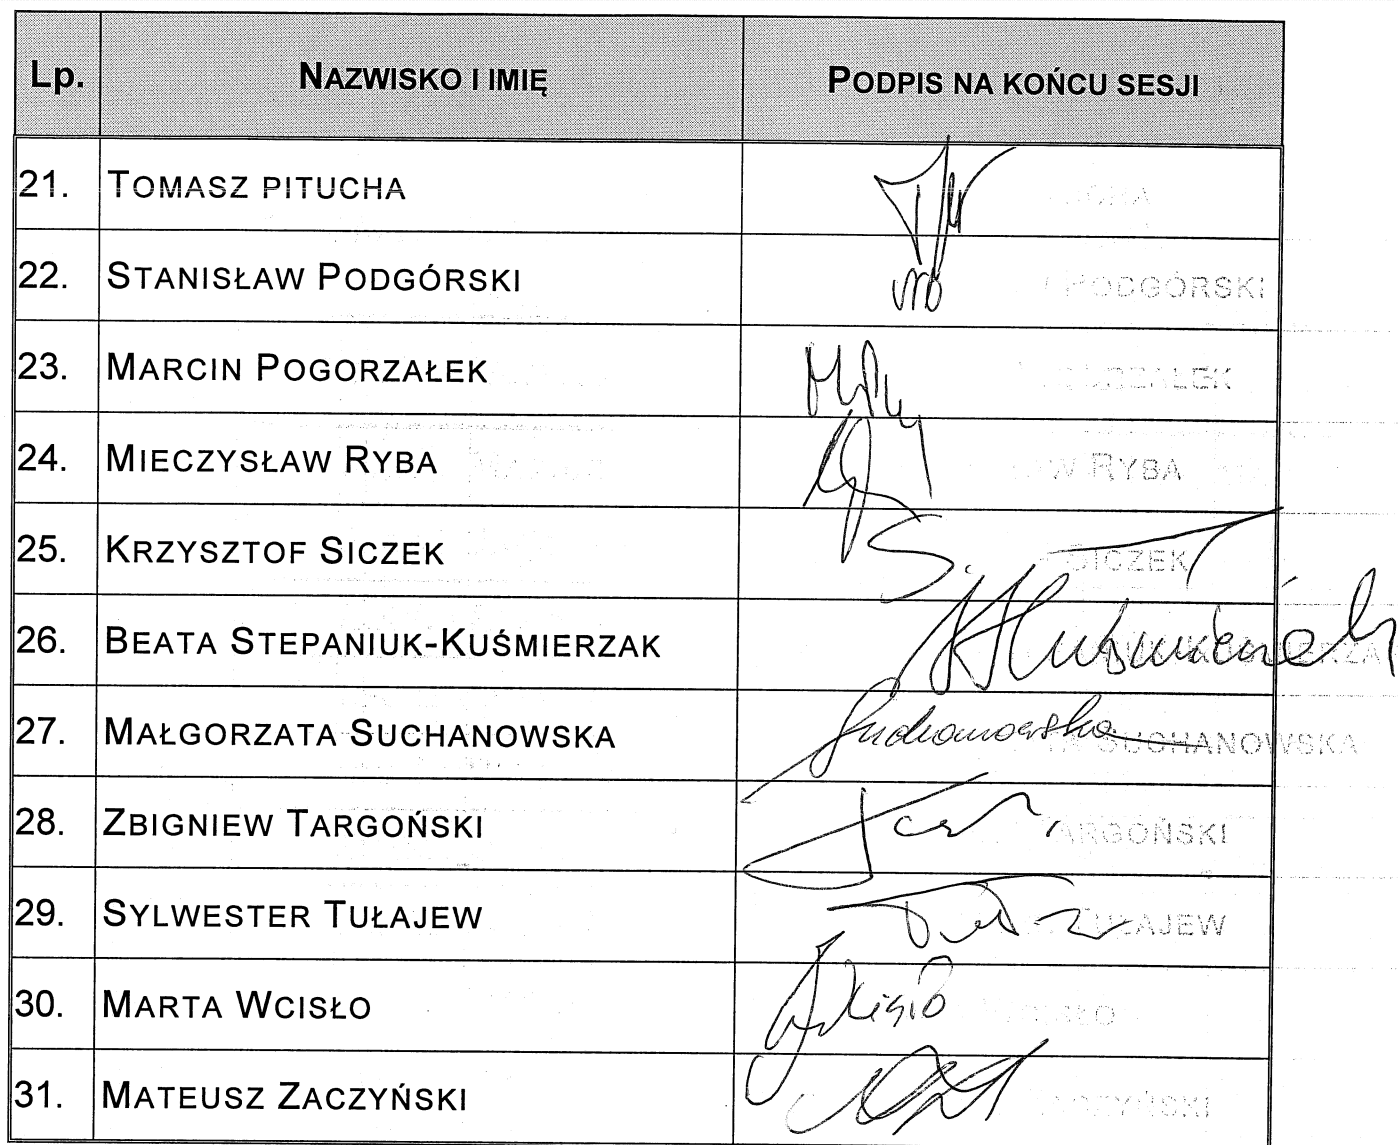 Lp. NAZWISKO I IMIĘ PODPIS NA KOŃCU SESJI
21. TOMASZ PITUCHA
22. STANISŁAW PODGÓRSKI PODGÓRSKI
23. MARCIN POGORZAŁEK
24. MIECZYSŁAW RYBA RYBA
25. KRZYSZTOF SICZEK SICZEK
26. BEATA STEPANIUK-KUŚMIERZAK
27. MAŁGORZATA SUCHANOWSKA Suchanowska SUCHANOWSKA
28. ZBIGNIEW TARGOŃSKI
29. SYLWESTER TUŁAJEW TUŁAJEW
30. MARTA WCISŁO
31. MATEUSZ ZACZYŃSKI